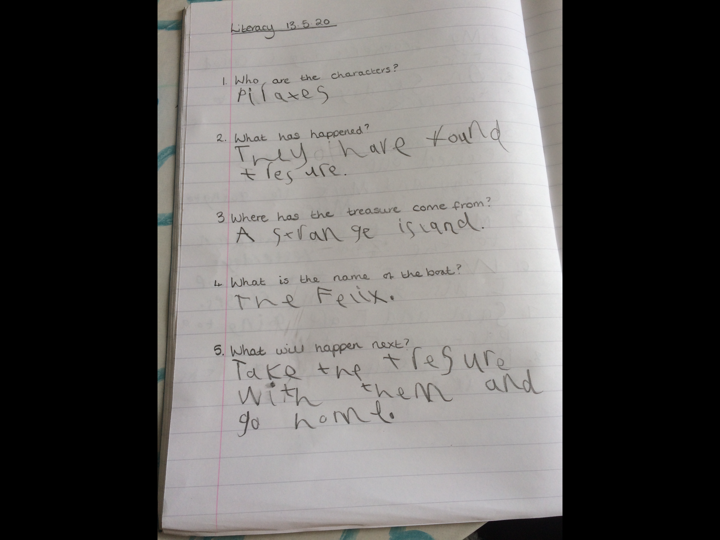 Literacy 13.5.20
1. Who are the characters?
Pilates
2. What has happened?
They have found
tresure.
3. Where has the treasure come from?
A strange island.
4. What is the name of the boat?
The Felix.
5. What will happen next?
Take the tresure
with them and
go home.